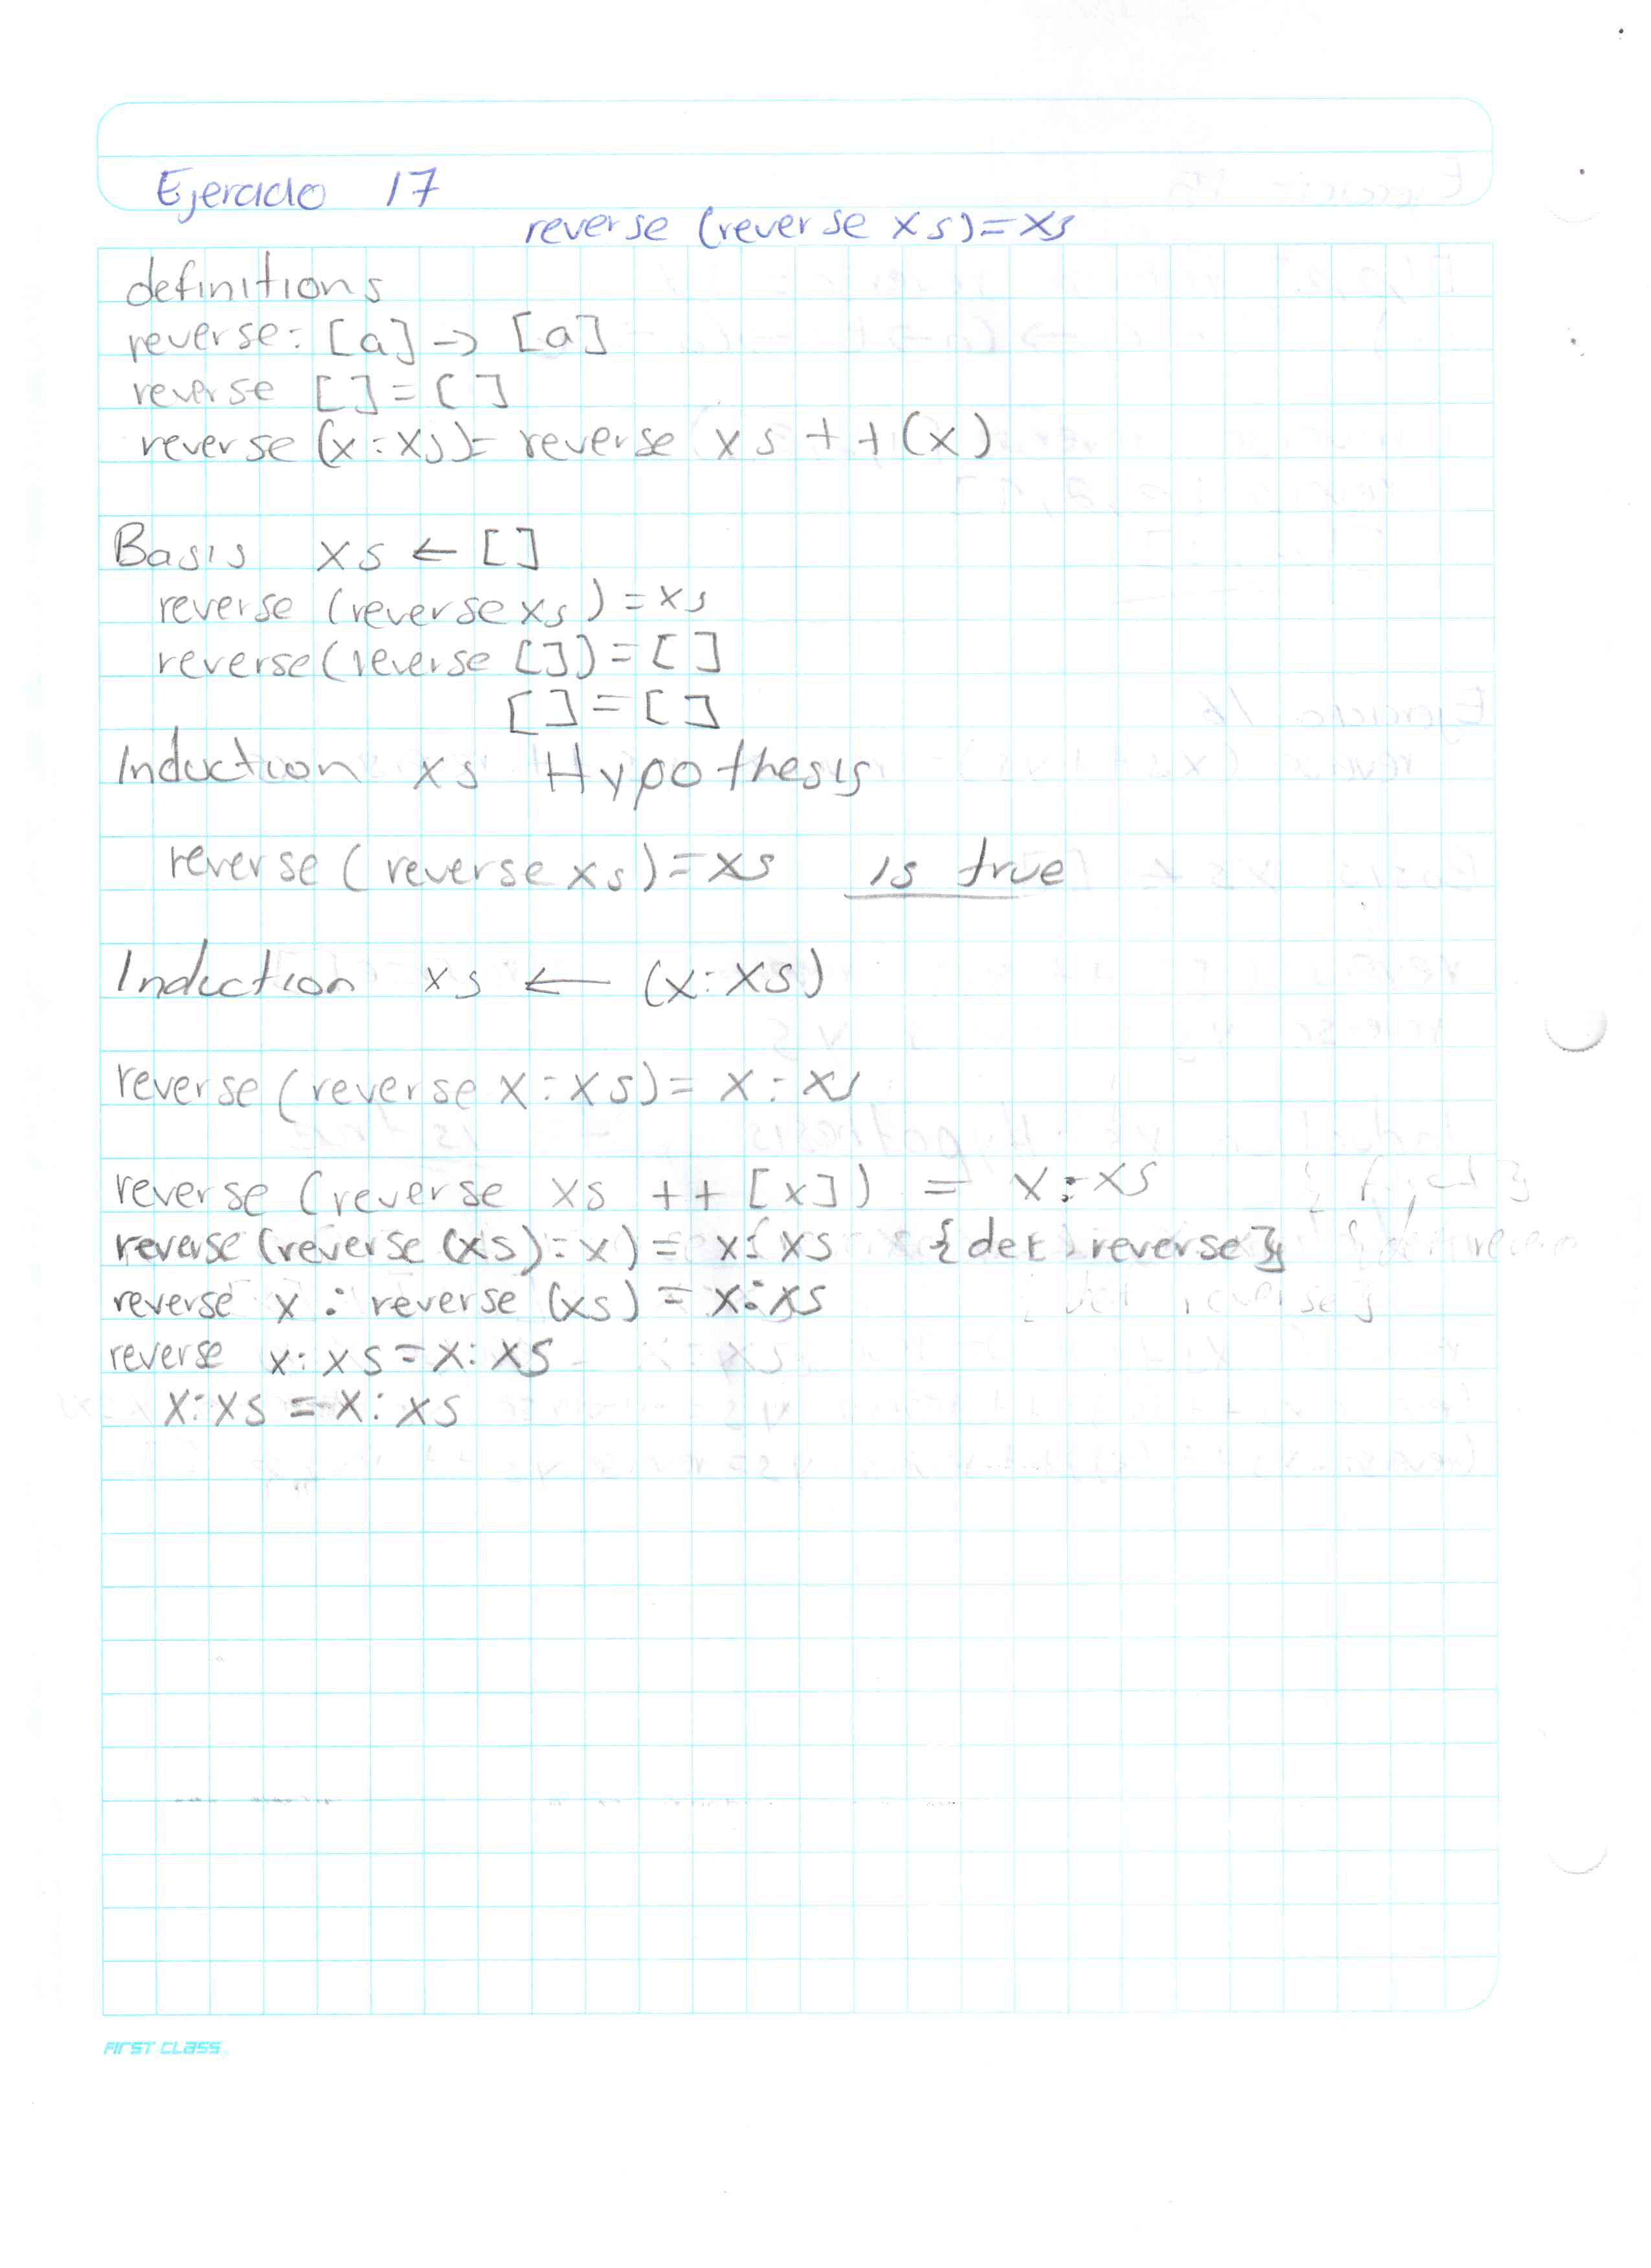 Ejercicio 17
reverse (reverse xs)=xs
definitions
reverse: [a] -> [a]
reverse []=[]
reverse (x:xs)= reverse xs ++(x)
Basis xs ← []
reverse (reverse xs)=xs
reverse(reverse [])=[]
[]=[]
Induction xs Hypothesis
reverse (reverse xs)=xs is true
Induction xs ← (x:xs)
reverse (reverse x:xs)= x:xs
reverse (reverse xs ++ [x]) = x:xs
reverse (reverse (xs):x)= x:xs {def reverse}
reverse x : reverse (xs) = x:xs
reverse x:xs=x:xs
x:xs =x:xs
FIRST CLASS